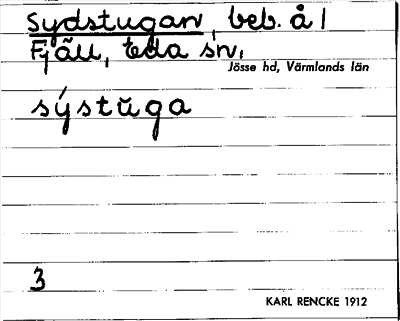 Sydstugan, beb. å 1
Fjäll, Eda sn,
Jösse hd, Värmlands län
sýstŭga
3
KARL RENCKE 1912